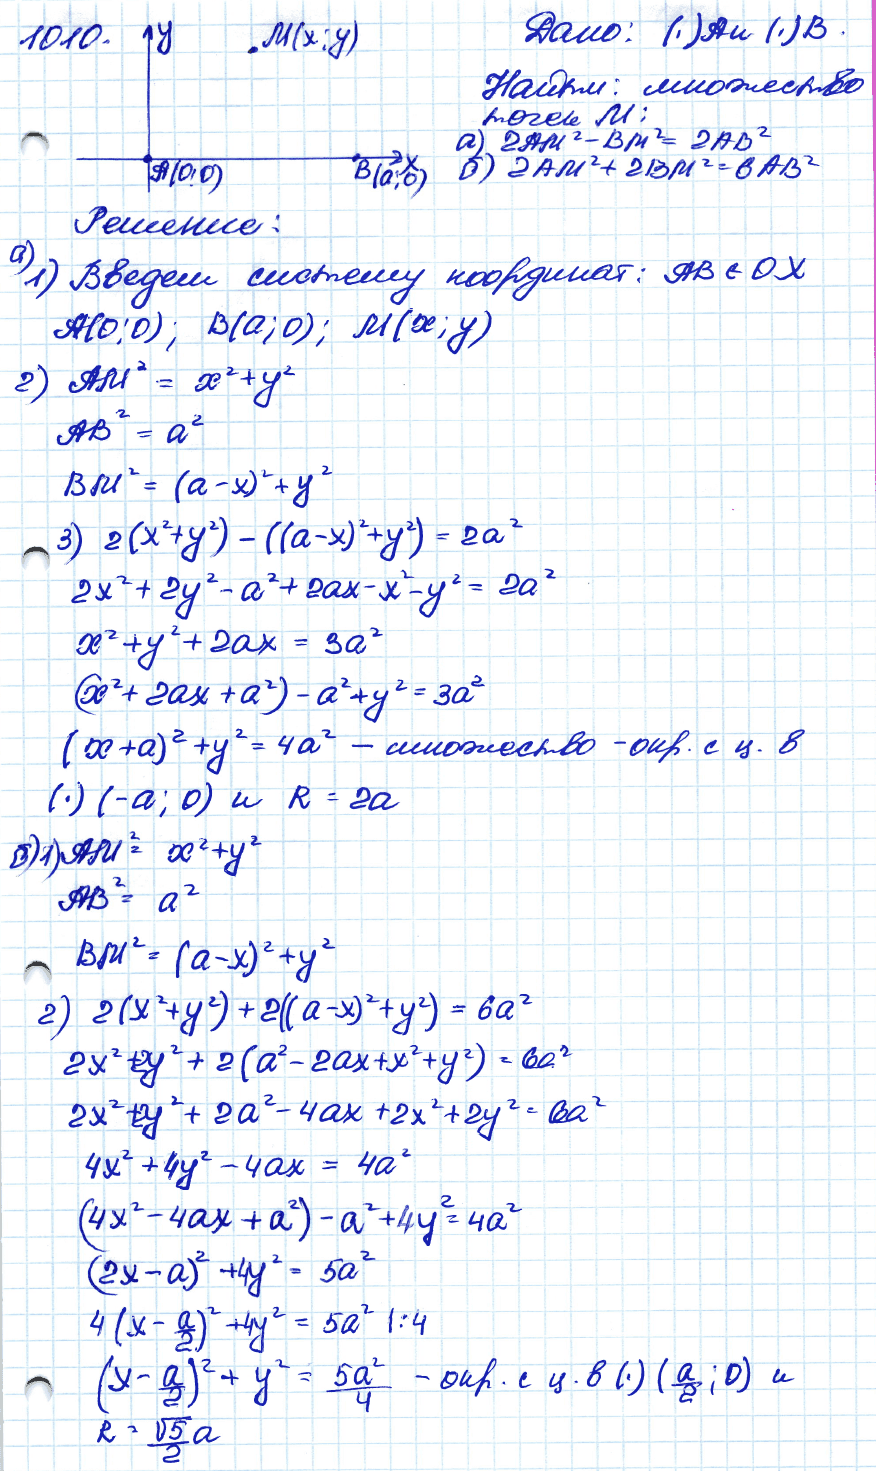 1010.
y
M(x; y)
A(0;0)
B(a;0)
x
Дано: (·)A и (·)B.
Найти: множество
точек M:
а) 2AM² - BM² = 2AB²
б) 2AM² + 2BM² = 6AB²
Решение:
а)
1) Введем систему координат: AB ∈ OX
A(0;0); B(a;0); M(x;y)
2) AM² = x² + y²
AB² = a²
BM² = (a-x)² + y²
3) 2(x²+y²) - ((a-x)²+y²) = 2a²
2x² + 2y² - a² + 2ax - x² - y² = 2a²
x² + y² + 2ax = 3a²
(x² + 2ax + a²) - a² + y² = 3a²
(x+a)² + y² = 4a² – множество - окр. с ц. в
(·) (-a; 0) и R = 2a
б) 1) AM² = x² + y²
AB² = a²
BM² = (a-x)² + y²
2) 2(x²+y²) + 2((a-x)²+y²) = 6a²
2x² + 2y² + 2(a² - 2ax + x² + y²) = 6a²
2x² + 2y² + 2a² - 4ax + 2x² + 2y² = 6a²
4x² + 4y² - 4ax = 4a²
(4x² - 4ax + a²) - a² + 4y² = 4a²
(2x - a)² + 4y² = 5a²
4(x - a/2)² + 4y² = 5a² |:4
(x - a/2)² + y² = 5a²/4 - окр. с ц. в (·) (a/2; 0) и
R = √5/2 a